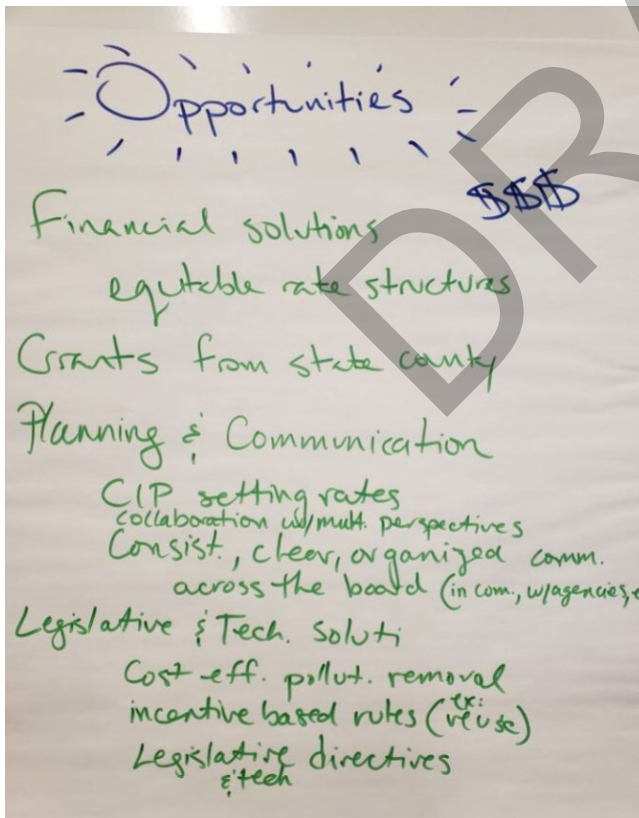 Opportunities
$$$
Financial solutions
equitable rate structures
Grants from state county
Planning & Communication
CIP setting rates
collaboration w/mult. perspectives
Consist., clear, organized comm.
across the board (in com., w/agencies,
Legislative & Tech. Soluti
Cost-eff. pollut. removal
incentive based rutes (ex: reuse)
Legislative directives
& tech
DR